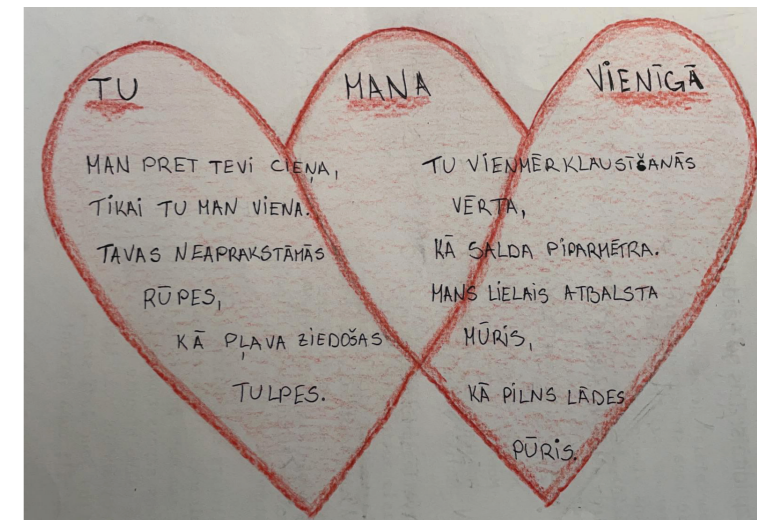 TU MANA VIENĪGĀ
MAN PRET TEVI CIEŅA,
TIKAI TU MAN VIENA.
TAVAS NEAPRAKSTĀMĀS
RŪPES,
KĀ PĻAVA ZIEDOŠAS
TULPES.
TU VIENMĒR KLAUSĪŠANĀS
VĒRTA,
KĀ SALDA PIPARMĒTRA.
MANS LIELAIS ATBALSTA
MŪRIS,
KĀ PILNS LĀDES
PŪRIS.